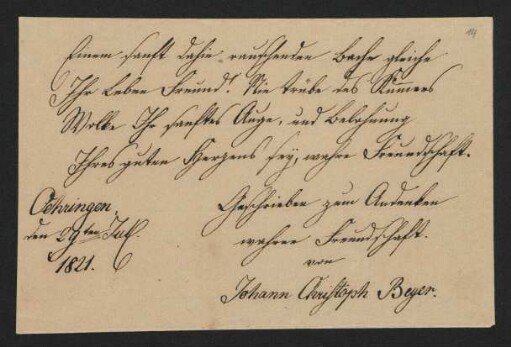 Einem sanft dahin rauschenden Bache gleiche
Ihr Leben Freund! Nie trübe des Kumers
Wolke Ihr sanftes Auge, und Belohnung
Ihres guten Herzens sey, wahre Freundschaft.
Oehringen,
den 29ten Jul.
1821.
Geschrieben zum Andenken
wahrer Freundschaft.
von
Johann Christoph Beyer.